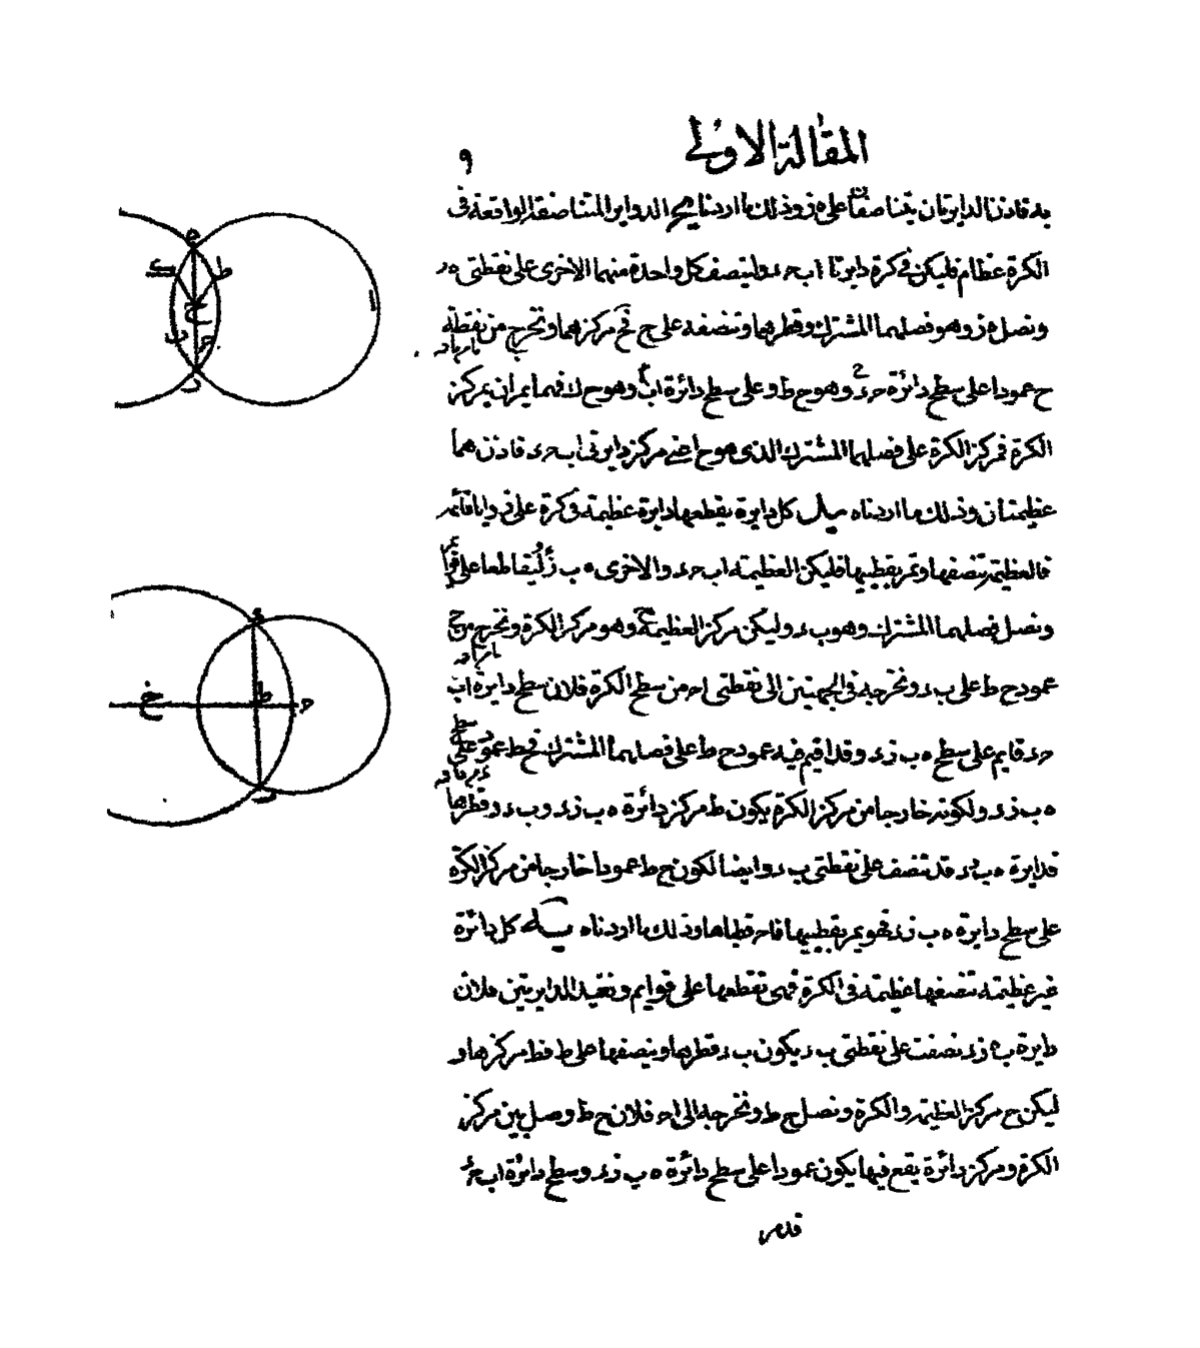 المقالة الاولى
٩
به فاذن الدايرتان يتناصفان على ه ز وذلك ما اردناه يج الدواير المتناصفة الواقعة فى
الكرة عظام فليكن فى كرة دايرتا اب حء ولينصف كل واحدة منهما الاخرى على نقطتى ه ز
ونصل ه ز وهو فصلهما المشترك وقطرهما وننصفه على ح فح مركزهما ونخرج من نقطة
ح عمودا على سطح دائرة حء وهو ح ط وعلى سطح دائرة اب وهو ح ك فهما يمران بمركز
الكرة فمركز الكرة على فصلهما المشترك الذى هو ح اعنى مركز دايرتى اب حء فاذن هما
عظيمتان وذلك ما اردناه يد كل دايرة يقطعها دايرة عظيمة فى كرة على زوايا قائمة
فالعظيمة تنصفها وتمر بقطبيها فليكن العظيمة اب حء والاخرى ه ب زء ليتقاطعا على قوائم
ونصل فصلهما المشترك وهو بء وليكن مركز العظيمة ح وهو مركز الكرة ونخرج من ح
عمود ح ط على بء ونخرجه فى الجهتين الى نقطتى اح من سطح الكرة فلان سطح دايرة اب
حء قايم على سطح ه ب زء وقد اقيم فيه عمود ح ط على فصلهما المشترك فح ط عمود على سطح
ه ب زء ولكونه خارجا من مركز الكرة يكون ط مركز دائرة ه ب زء وبء قطرها
فدايرة ه ب زء قد تنصف على نقطتى بء وايضا لكون ح ط عمودا خارجا من مركز الكرة
على سطح دايرة ه ب زء فهو يمر بقطبيها فاح قطباها وذلك ما اردناه يه كل دائرة
غير عظيمة تنصفها عظيمة فى الكرة فهى تقطعها على قوايم ونعيد الدايرتين فلان
دايرة ب ه زء نصفت على نقطتى بء يكون بء قطرها وينصفها على ط فط مركزها و
ليكن ح مركز العظيمة والكرة ونصل ح ط ونخرجه الى اح فلان ح ط وصل بين مركز
الكرة ومركز دائرة يقع فيها يكون عمودا على سطح دائرة ه ب زء وسطح دائرة اب حء
قد مر